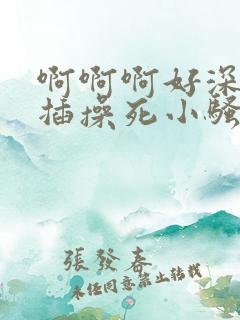 啊啊啊好深
插操死小骚
張發春
未任同意禁止转载